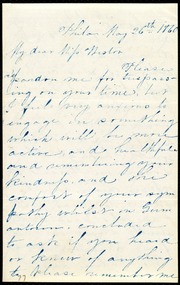 Philad May 26th 1860
My dear Miss Weston
Please
pardon me for trespass-
ing on your time, but
I feel very anxious to
engage in something
which will be more
active and healthful
and remembering your
kindness, and the
comfort of your sym
pathy whilst in
concluded
to ask if you heard
or knew of anything
Please remember me